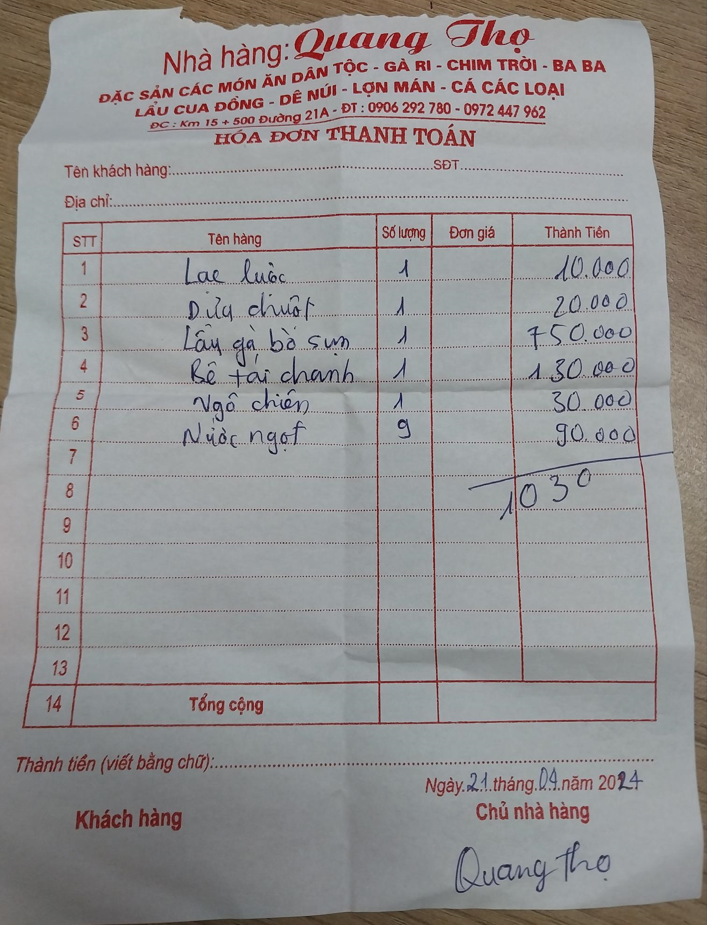 Nhà hàng: Quang Thọ
ĐẶC SẢN CÁC MÓN ĂN DÂN TỘC - GÀ RI - CHIM TRỜI - BA BA
LẨU CUA ĐỒNG - DÊ NÚI - LỢN MÁN - CÁ CÁC LOẠI
ĐC : Km 15 + 500 Đường 21A - ĐT : 0906 292 780 - 0972 447 962
HÓA ĐƠN THANH TOÁN
Tên khách hàng: SĐT
Địa chỉ:
STT Tên hàng Số lượng Đơn giá Thành Tiền
1 Lạc luộc 1 10.000
2 Dưa chuột 1 20.000
3 Lẩu gà bò sụn 1 750.000
4 Bê tái chanh 1 130.000
5 Ngô chiên 1 30.000
6 Nước ngọt 9 90.000
7
8 1030
9
10
11
12
13
14 Tổng cộng
Thành tiền (viết bằng chữ):
Ngày 21 tháng 04 năm 2024
Khách hàng Chủ nhà hàng
Quang Thọ